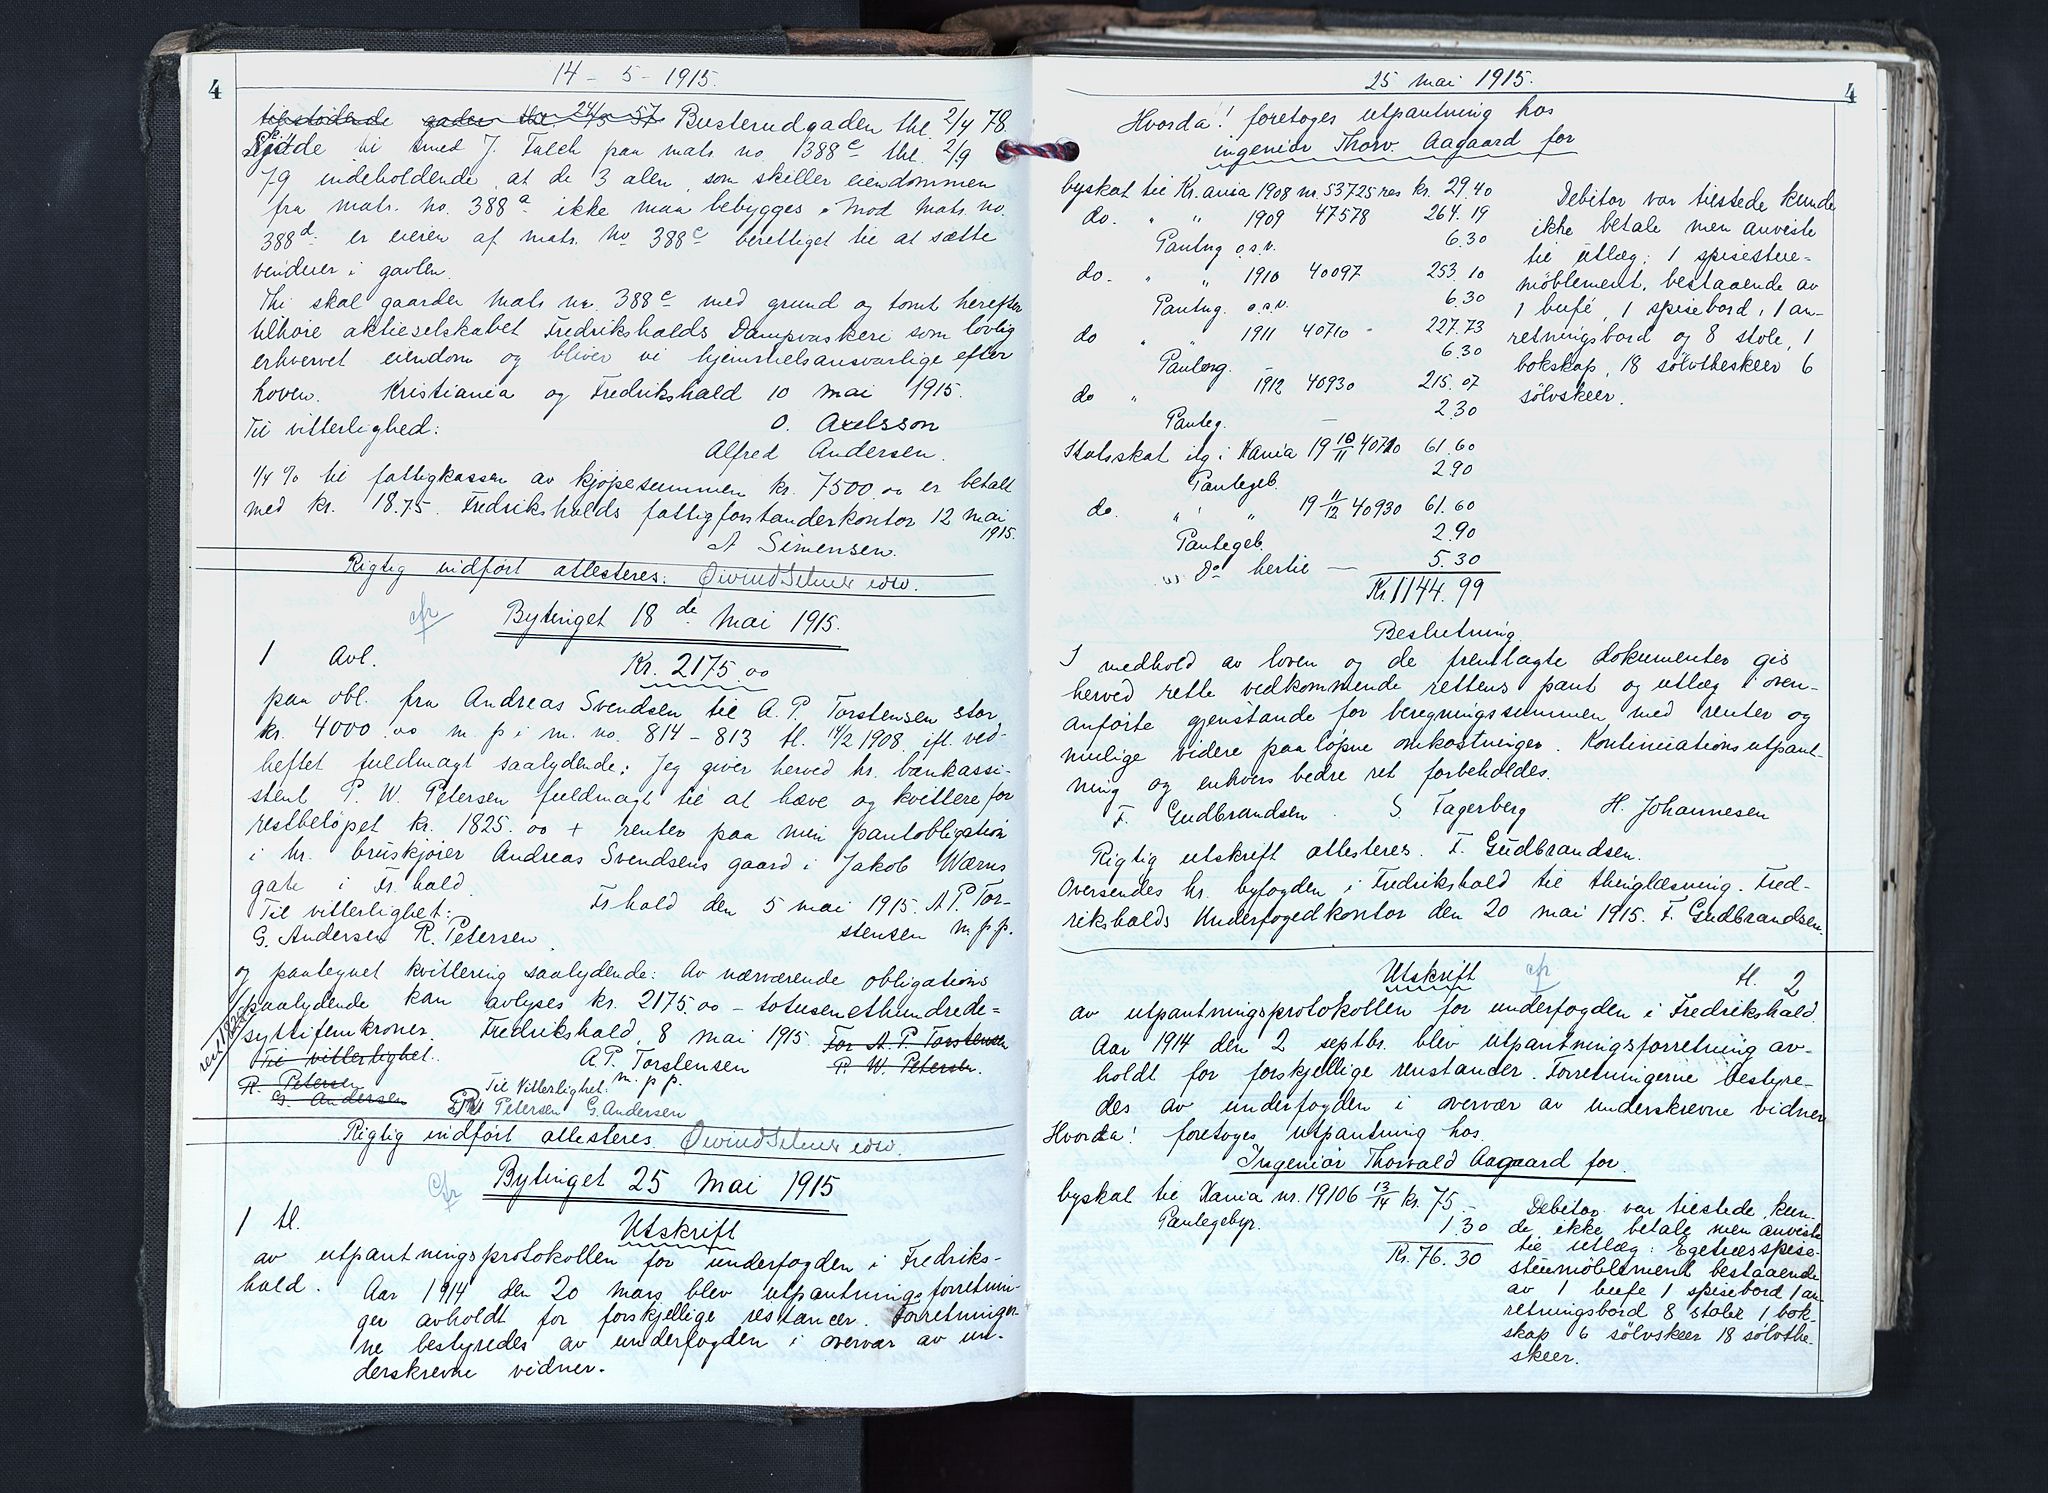 4
14 - 5 - 1915.
tilstødende gaden thl. 24/5 57 Busterudgaden thl. 2/4 78.
til smed J. Falch paa matr. no. 1388 c thl. 2/9
79 indeholdende, at de 3 alen, som skiller eiendommen
fra matr. no. 388 a ikke maa bebygges. Mod matr. no.
388 d er eieren af matr. no 388 c berettiget til at sætte
vinduer i gavlen.
Thi skal gaarden matr no. 388 c med grund og tomt herefter
tilhøre aktieselskabet Fredrikshalds Dampvaskeri som lovlig
erhvervet eiendom og bliver vi hjemmelsansvarlige efter
loven. Kristiania og Fredrikshald 10 mai 1915.
Til vitterlighed: O. Axelsson
Alfred Andersen.
1/4 % til fattigkassen av kjøpesummen kr. 7500.00 er betalt
med kr. 18.75. Fredrikshalds fattigforstanderkontor 12 mai
1915.
A Simensen.
Rigtig indført attesteres. Øivind
cfr
Bytinget 18 de Mai 1915.
1 Avl. Kr. 2175.00
paa obl. fra Andreas Svendsen til A. P. Torstensen stor
kr. 4000.00 m. p i m. no. 814 - 813 tl. 14/2 1908, ifl. ved-
heftet fuldmagt saalydende: Jeg giver herved hr. bankassi-
stent P. W. Petersen fuldmagt til at hæve og kvittere for
restbeløpet kr. 1825.00 + renter paa min pantobligation
i hr. bruskjører Andreas Svendsens gaard i Jakob Wærns
gate i Fr.hald.
Til vitterlighet: Fr hald den 5 mai 1915. A P. Tor-
G. Andersen R. Petersen stensen m.p.p.
og paategnet kvittering saalydende: Av nærværende obligations
paalydende kan avlyses kr. 2175.00 - totusenethundrede-
rest 1825
syttifemkroner. Fredrikshald, 8 mai 1915. For A. P. Torstensen
Til vitterlighet. A.P. Torstensen P. W. Petersen.
R. Petersen Til Vitterlighet. m.p.p.
G. Andersen Petersen G. Andersen
Rigtig indført attesteres. Øivind
cfr
Bytinget 25 Mai 1915
1 tl. Utskrift
av utpantningsprotokollen for underfogden i Fredriks-
hald. Aar 1914 den 20 mars blev utpantningsforretnin-
ger avholdt for forskjellige restancer. Forretninger-
ne bestyredes av underfogden i overvær av un-
derskrevne vidner.
25 mai 1915.
4
Hvorda! foretoges utpantning hos
ingeniør Thorv. Aagaard for
byskat til Kr.ania 1908 nr. 53725 res kr. 29.40
do. " " 1909 47578 264.19
Pantng o.s.v. 6.30
do. " " 1910 40097 253.10
Pantng. o.s.v. 6.30
do " " 1911 40710 - 227.73
Pantng. 6.30
do " - 1912 40930 215.07
Panteg. — 2.30
Statsskat ilg i Kania 19 10/11 40710 61.60
Pantegeb. 2.90
do. " " 19 11/12 40930 61.60
Pantegeb. 2.90
Do hertil — 5.30
Kr. 1144.99
Debitor var tilstede kunde
ikke betale men anviste
til utlæg: 1 spisestue-
møblement, bestaaende av
1 bufé, 1 spisebord, 1 an-
retningsbord og 8 stole, 1
bokskap, 18 sølvtheskeer 6
sølvskeer.
Beslutning.
I medhold av loven og de fremlagte dokumenter gis
herved rette vedkommende rettens pant og utlæg i oven-
anførte gjenstande for beregningssummen med renter og
mulige videre paaløpne omkostninger. Kontinuationsutpant-
ning og enhvers bedre ret forbeholdes.
F. Gudbrandsen. S. Fagerberg H. Johannesen
Rigtig utskrift attesteres. F. Gudbrandsen.
Oversendes hr. byfogden i Fredrikshald til thinglæsning. Fred-
rikshalds Underfogedkontor den 20 mai 1915. F. Gudbrandsen.
Utskrift cfr tl. 2
av utpantningsprotokollen for underfogden i Fredrikshald.
Aar 1914 den 2 septbr. blev utpantningsforretning av-
holdt for forskjellige restancer. Forretningerne bestyre-
des av underfogden i overvær av underskrevne vidner
Hvorda! foretoges utpantning hos.
Ingeniør Thorvald Aagaard for.
byskat til Kania nr. 19106 13/14 kr. 75.-
Pantegebyr. 1.30
Kr. 76.30
Debitor var tilstede, kun-
de ikke betale men anviste
til utlæg: Egetræsspise-
stuemøblement bestaaende
av 1 bufe 1 spisebord 1 an-
retningsbord 8 stoler 1 bok-
skap 6 sølvskeer 18 sølvthe-
skeer.